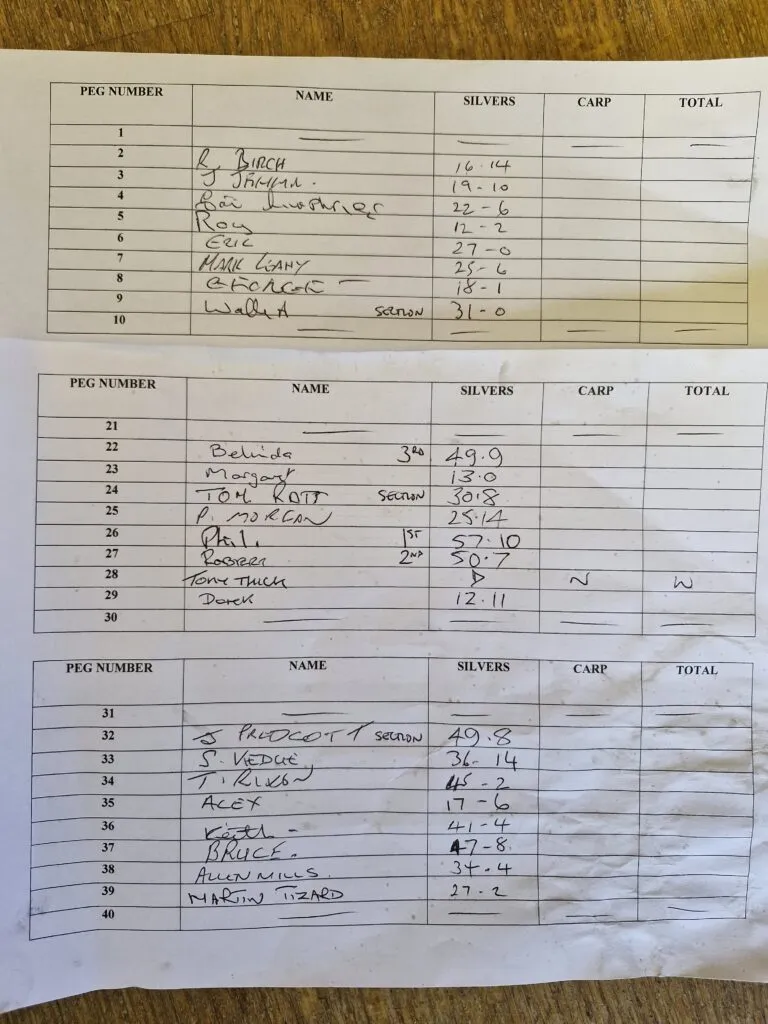 PEG NUMBER NAME SILVERS CARP TOTAL
1
2 R. BIRCH 16.14
3 J 19-10
4 22-6
5 Roy 12-2
6 ERIC 27-0
7 MARK LEAHY 25-6
8 GEORGE 18-1
9 Wally A SECTION 31-0
10
PEG NUMBER NAME SILVERS CARP TOTAL
21
22 Belinda 3RD 49.9
23 Margaret 13.0
24 TOM RATT SECTION 30.8
25 P. MORGAN 25.14
26 Phil. 1ST 57.10
27 2ND 50.7
28 TONY THICK D N W
29 Derek 12.11
30
PEG NUMBER NAME SILVERS CARP TOTAL
31
32 J PREDCOTT SECTION 49.8
33 S. VEDUE 36-14
34 T. RIXON 45-2
35 ALEX 17-6
36 Keith - 41-4
37 BRUCE. 47-8
38 ALLEN MILLS 34.4
39 MARTIN TIZARD 27-2
40